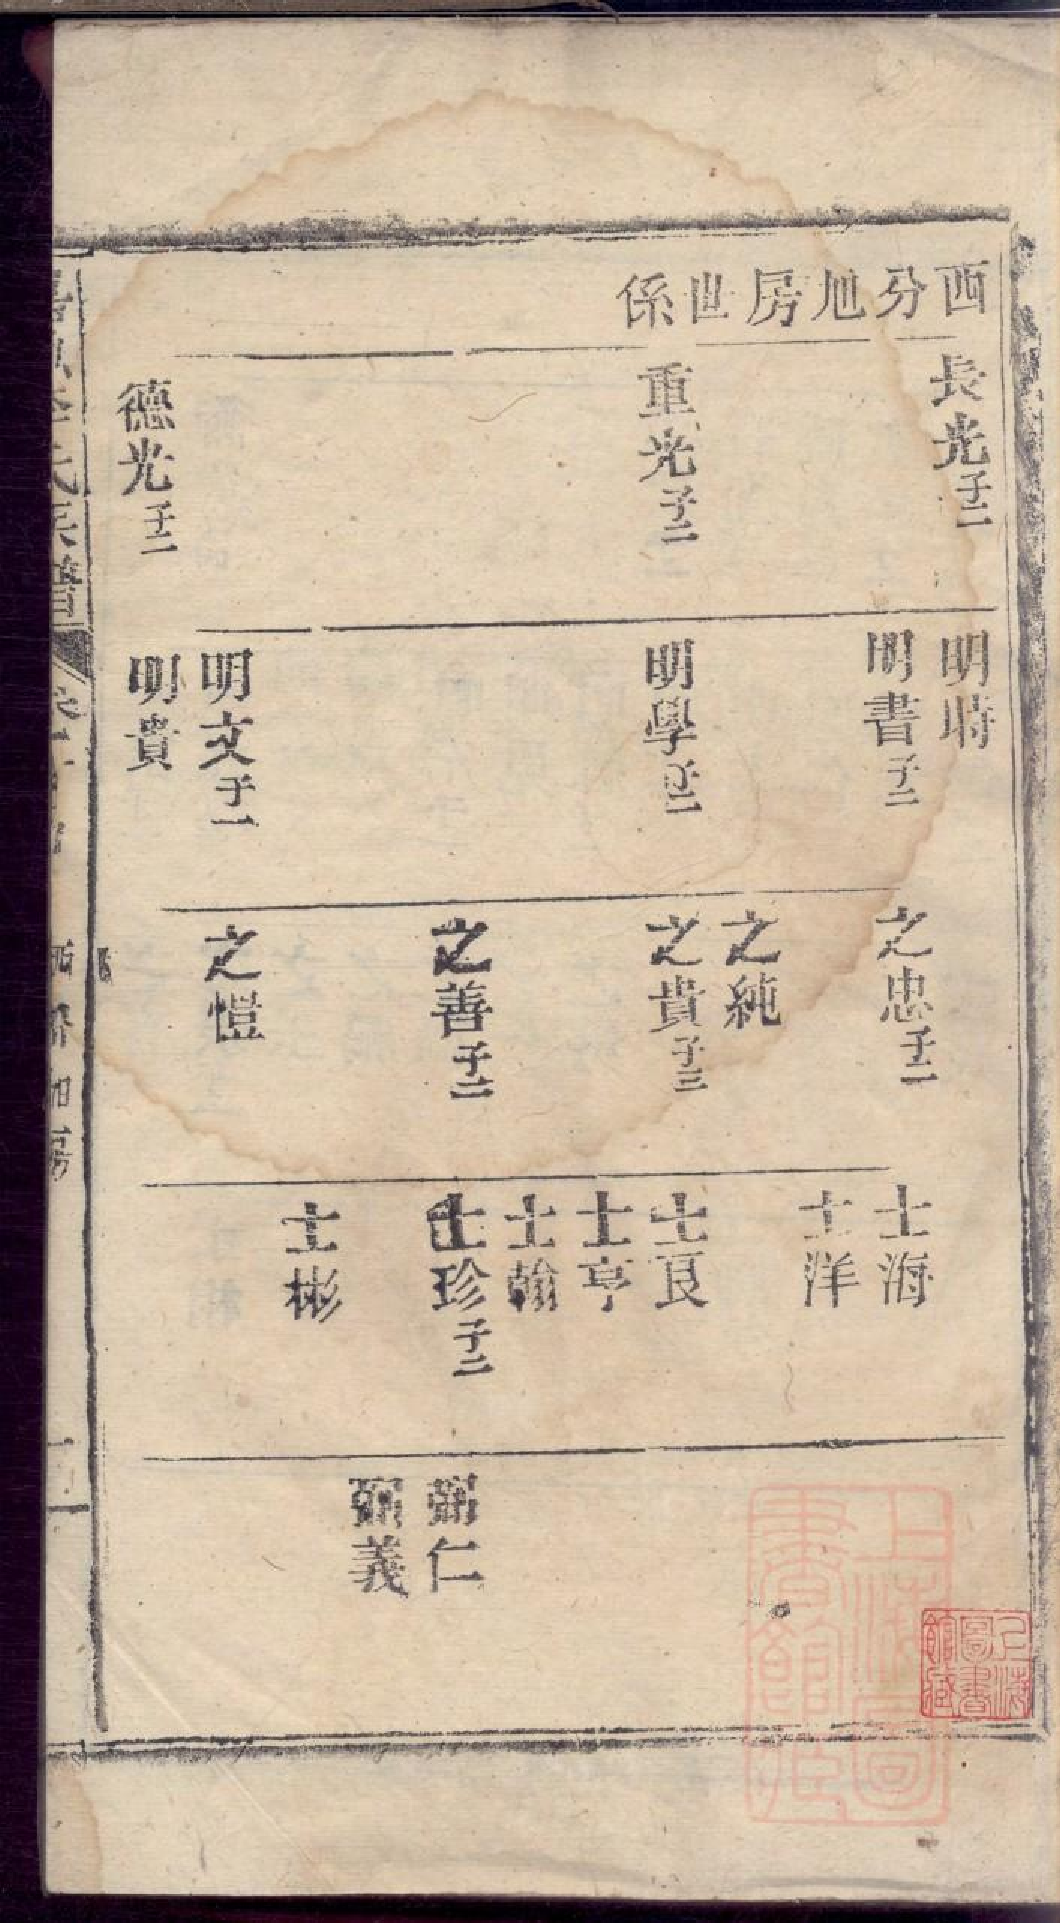 西分旭房世係
長光子二
重光子二
德光子二
明時
明書子二
明學子二
明文子一
明貴
之忠子二
之純
之貴子三
之善子二
之愷
士海
士洋
士良
士亨
士翰
士珍子二
士彬
弼仁
弼義
氏宗譜
房
上海圖書館藏
上海圖書館藏